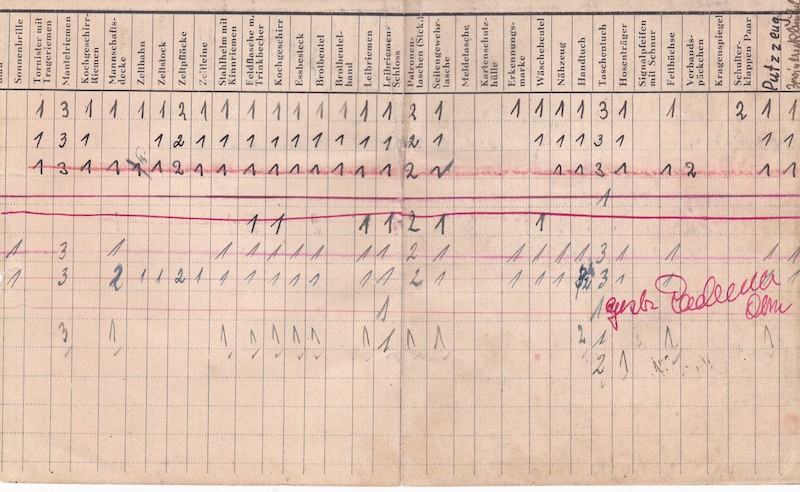 Sonnenbrille
Tornister mit
Trageriemen
Mantelriemen
Kochgeschirr-
Riemen
Mannschafts-
decke
Zeltbahn
Zeltstock
Zeltpflöcke
Zeltleine
Stahlhelm mit
Kinnriemen
Feldflasche m.
Trinkbecher
Kochgeschirr
Essbesteck
Brotbeutel
Brotbeutel-
band
Leibriemen
Leibriemen-
Schloss
Patronen-
taschen (Stck.)
Seitengewehr-
tasche
Meldetasche
Kartenschutz-
hülle
Erkennungs-
marke
Wäschebeutel
Nähzeug
Handtuch
Taschentuch
Hosenträger
Signalpfeifen
mit Schnur
Fellbüchse
Verbands-
päckchen
Kragenspiegel
Schulter-
klappen Paar
Putzzeug
1 3 1 1 1 1 2 1 1 1 1 1 1 1 1 1 2 1 1 1 1 1 3 1 1 2 1 1
1 3 1 1 2 1 1 1 1 1 1 1 1 1 2 1 1 1 1 3 1 1 1
1 3 1 1 1 1 2 1 1 1 1 1 1 1 1 1 2 1 1 1 3 1 1 2 1 1
1
1 1 1 1 2 1 1
1 3 1 1 1 1 1 1 1 1 2 1 1 1 1 1 3 1 1 1 1
1 3 2 1 1 2 1 1 1 1 1 1 1 1 2 1 1 1 1 3 1 1
1 1
3 1 1 1 1 1 1 1 1 1 1 2 1 1 1
2 1